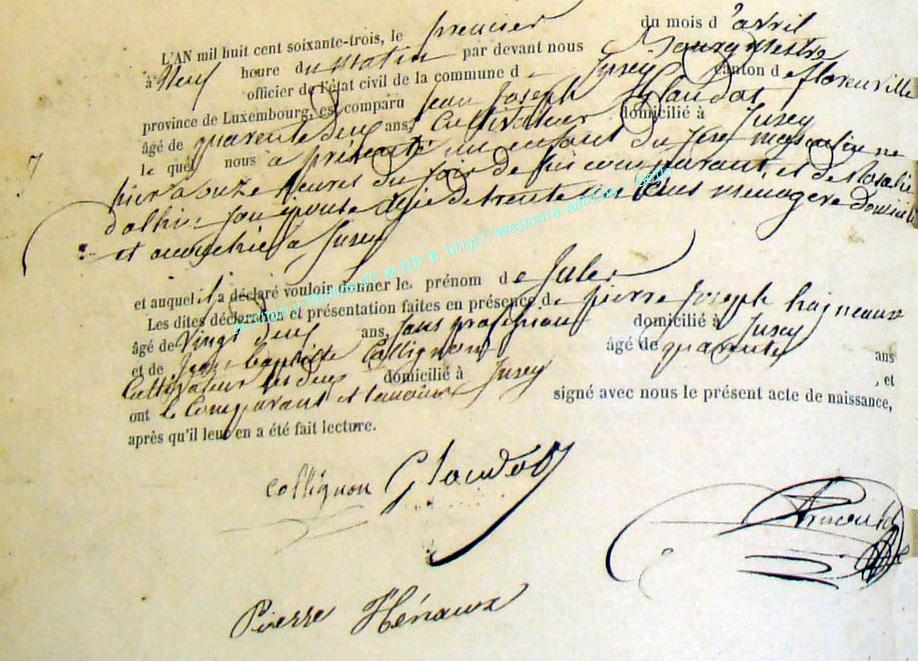 L'AN mil huit cent soixante-trois, le premier du mois d'avril
à Neuf heure du matin par devant nous Bourgmestre
officier de l'état civil de la commune d e Jusey canton d e florenville
province de Luxembourg, est comparu Jean Joseph Glaudot
âgé de quarente deux ans, Cultivateur domicilié à Jusey
le quel nous a présenté un enfant du sexe masculin ne
7
hier a onze heures du soir de lui comparant, et de Rosalie
son épouse agée de trente ans menagere
et à Jusey
et auquel il a déclaré vouloir donner le prénom d e Jules
Les dites déclaration et présentation faites en présence de pierre Joseph haineaux
âgé de vingt neuf ans, sans profession domicilié à Jusey
et de Jean baptiste Collignon âgé de quarente ans
Cultivateur les deux domicilié à Jusey , et
ont le Comparant et temoins signé avec nous le présent acte de naissance,
après qu'il leur en a été fait lecture.
http://wallonia-asbl.
collignon Glaudot
Pierre Hénaux